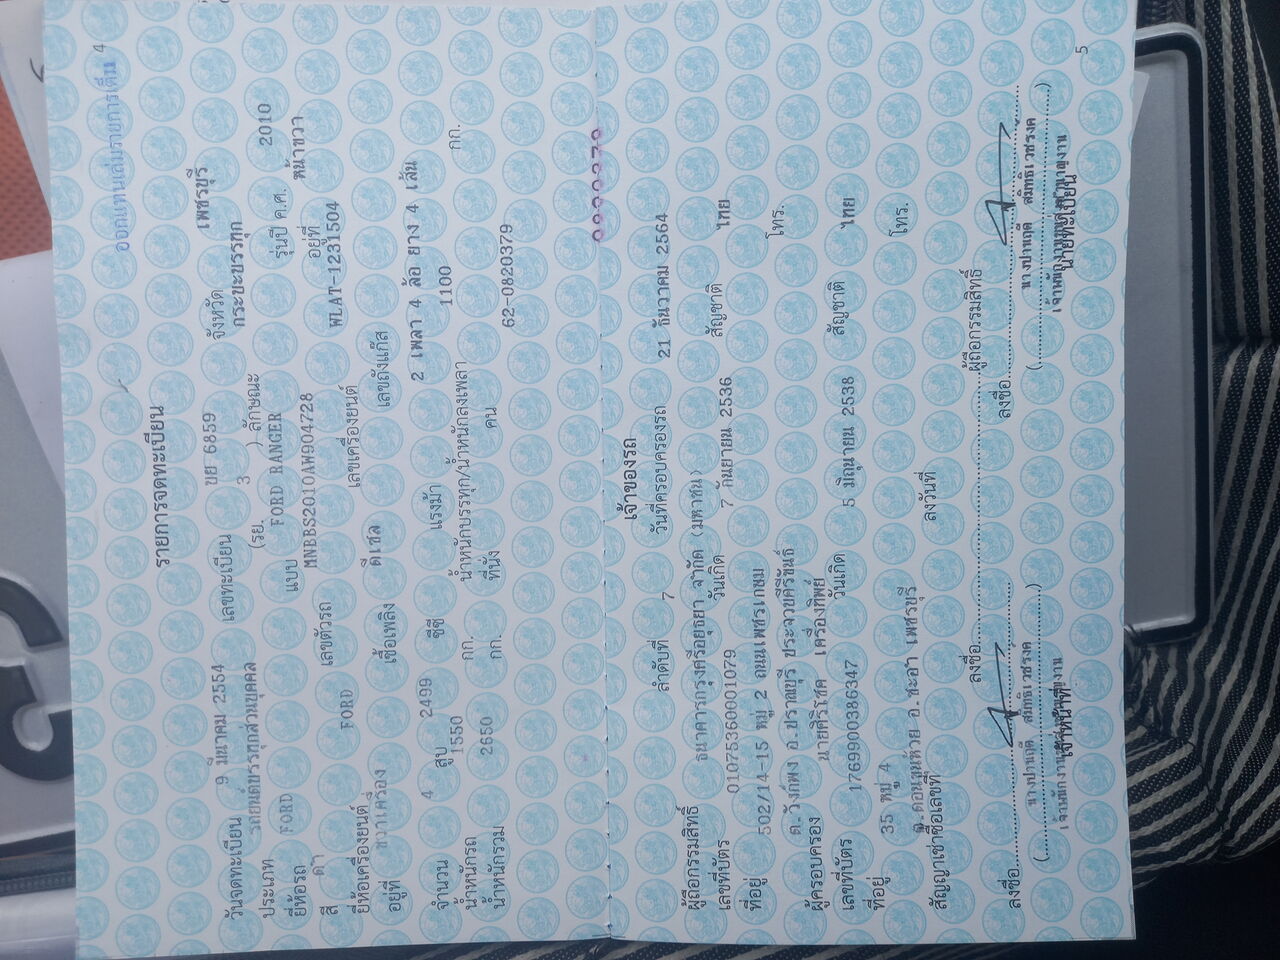 ออกแทนเล่มรายการเดิม 4
รายการจดทะเบียน
วันจดทะเบียน 9 มีนาคม 2554 เลขทะเบียน ขย 6859 จังหวัด เพชรบุรี
ประเภท รถยนต์บรรทุกส่วนบุคคล (รย. 3 ) ลักษณะ กระบะบรรทุก
ยี่ห้อรถ FORD แบบ FORD RANGER รุ่นปี ค.ศ. 2010
สี ดำ เลขตัวรถ MNBBS2010AW904728 อยู่ที่ หน้าขวา
ยี่ห้อเครื่องยนต์ FORD เลขเครื่องยนต์ WLAT-1231504
อยู่ที่ ขวาเครื่อง เชื้อเพลิง ดีเซล เลขถังแก๊ส
จำนวน 4 สูบ 2499 ซีซี แรงม้า 2 เพลา 4 ล้อ ยาง 4 เส้น
น้ำหนักรถ 1550 กก. น้ำหนักบรรทุก/น้ำหนักลงเพลา 1100 กก.
น้ำหนักรวม 2650 กก. ที่นั่ง คน
62-0820379
เจ้าของรถ
ลำดับที่ 7 วันที่ครอบครองรถ 21 ธันวาคม 2564
ผู้ถือกรรมสิทธิ์ ธนาคารกรุงศรีอยุธยา จำกัด (มหาชน)
เลขที่บัตร 0107536001079 วันเกิด 7 กันยายน 2536 สัญชาติ ไทย
ที่อยู่ 502/14-15 หมู่ 2 ถนนเพชรเกษม โทร.
ต.วังก์พง อ.ปราณบุรี ประจวบคีรีขันธ์
ผู้ครอบครอง นายศิริโชค เครื่องทิพย์
เลขที่บัตร 1769900386347 วันเกิด 5 มิถุนายน 2538 สัญชาติ ไทย
ที่อยู่ 35 หมู่ 4 โทร.
ต.ดอนขุนห้วย อ.ชะอำ เพชรบุรี
สัญญาเช่าซื้อเลขที่ ลงวันที่
ลงชื่อ ผู้ถือกรรมสิทธิ์
ลงชื่อ ลงชื่อ
เจ้าหน้าที่ นายทะเบียน
5